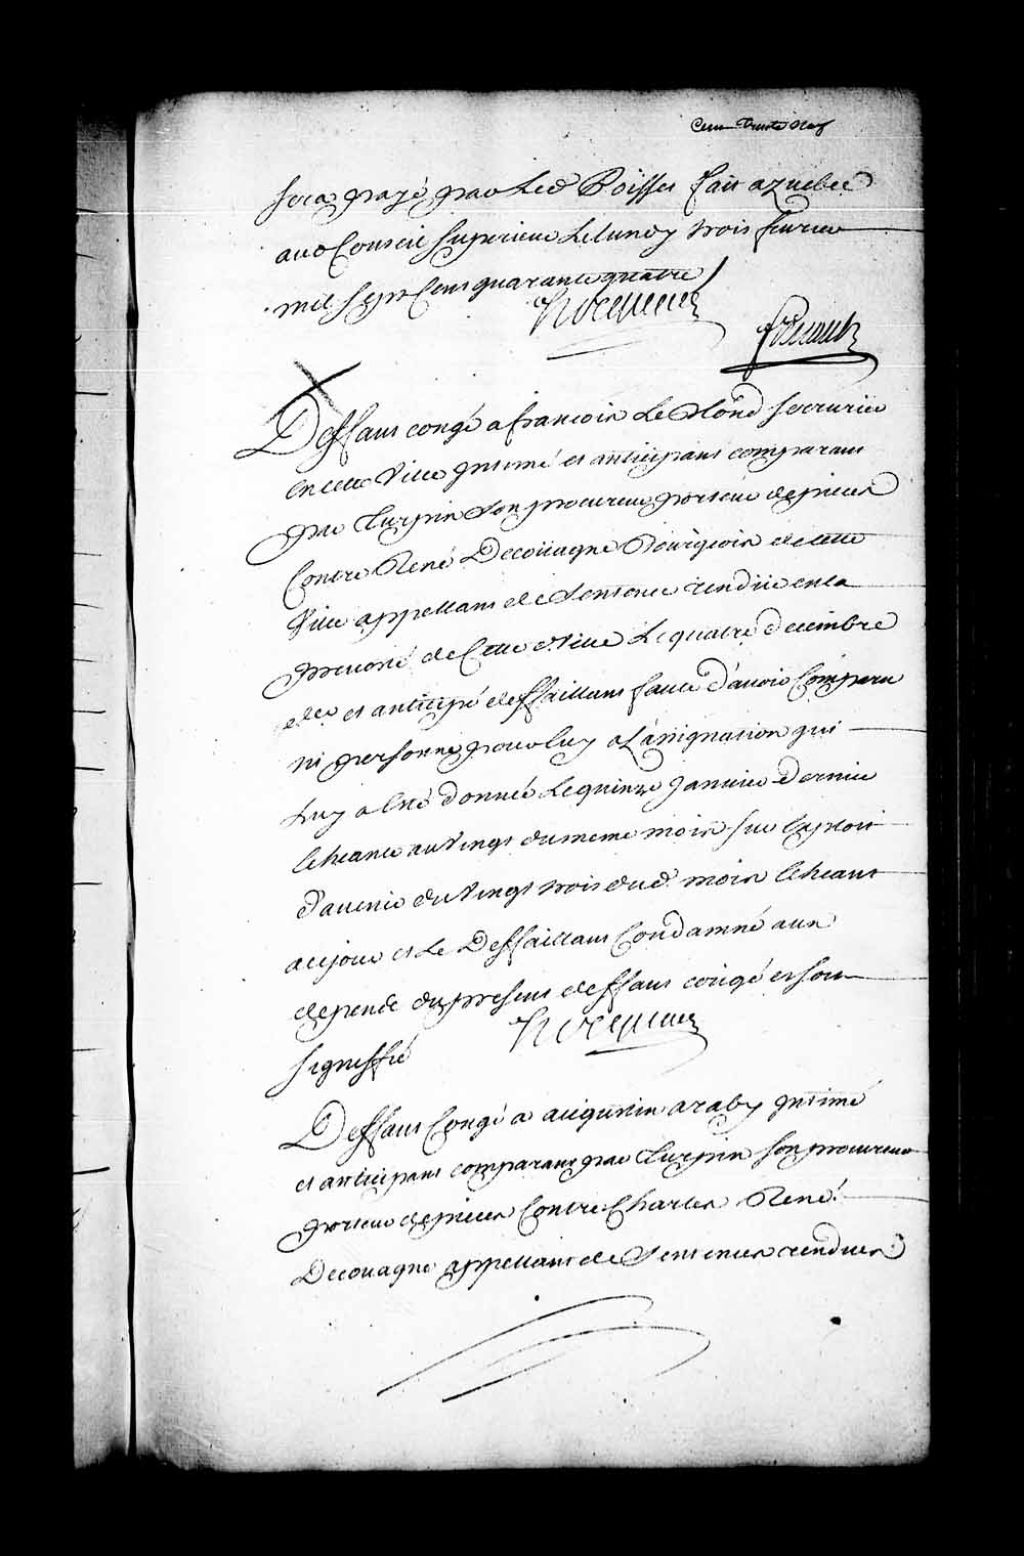 Cent Trente Neuf
sera payé par Led Poisset fait a quebec
aud Conseil Superieur Le lundy trois fevrier
mil sept Cent quarante quatre
Hocquart
foucault
Deffaut congé a francois Le blond serrurier
en cette Ville intimé et anticipant comparant
par Turpin son procureur porteur de pieces
Contre René Decouagne Bourgeois de cette
Ville appellant de Sentence rendüe en la
prevosté de Cette Ville Le quatre decembre
dr et anticipé deffaillant faute d'avoir Comparu
ni personne pour luy a L'assignation qui
Luy a Eté donnée Le quinze Janvier dernier
Echeante au Vingt du meme mois sur Exploit
d'avenir du Vingt trois dud. mois Echeant
a ce jour et Le Deffaillant Condamné aux
depends du present deffaut congé et soit
signiffié
Hocquart
Deffaut Congé a augustin araby intimé
et anticipant comparant par Turpin son procureur
porteur de pieces Contre Charles René
Decouagne appellant de Sentences rendues